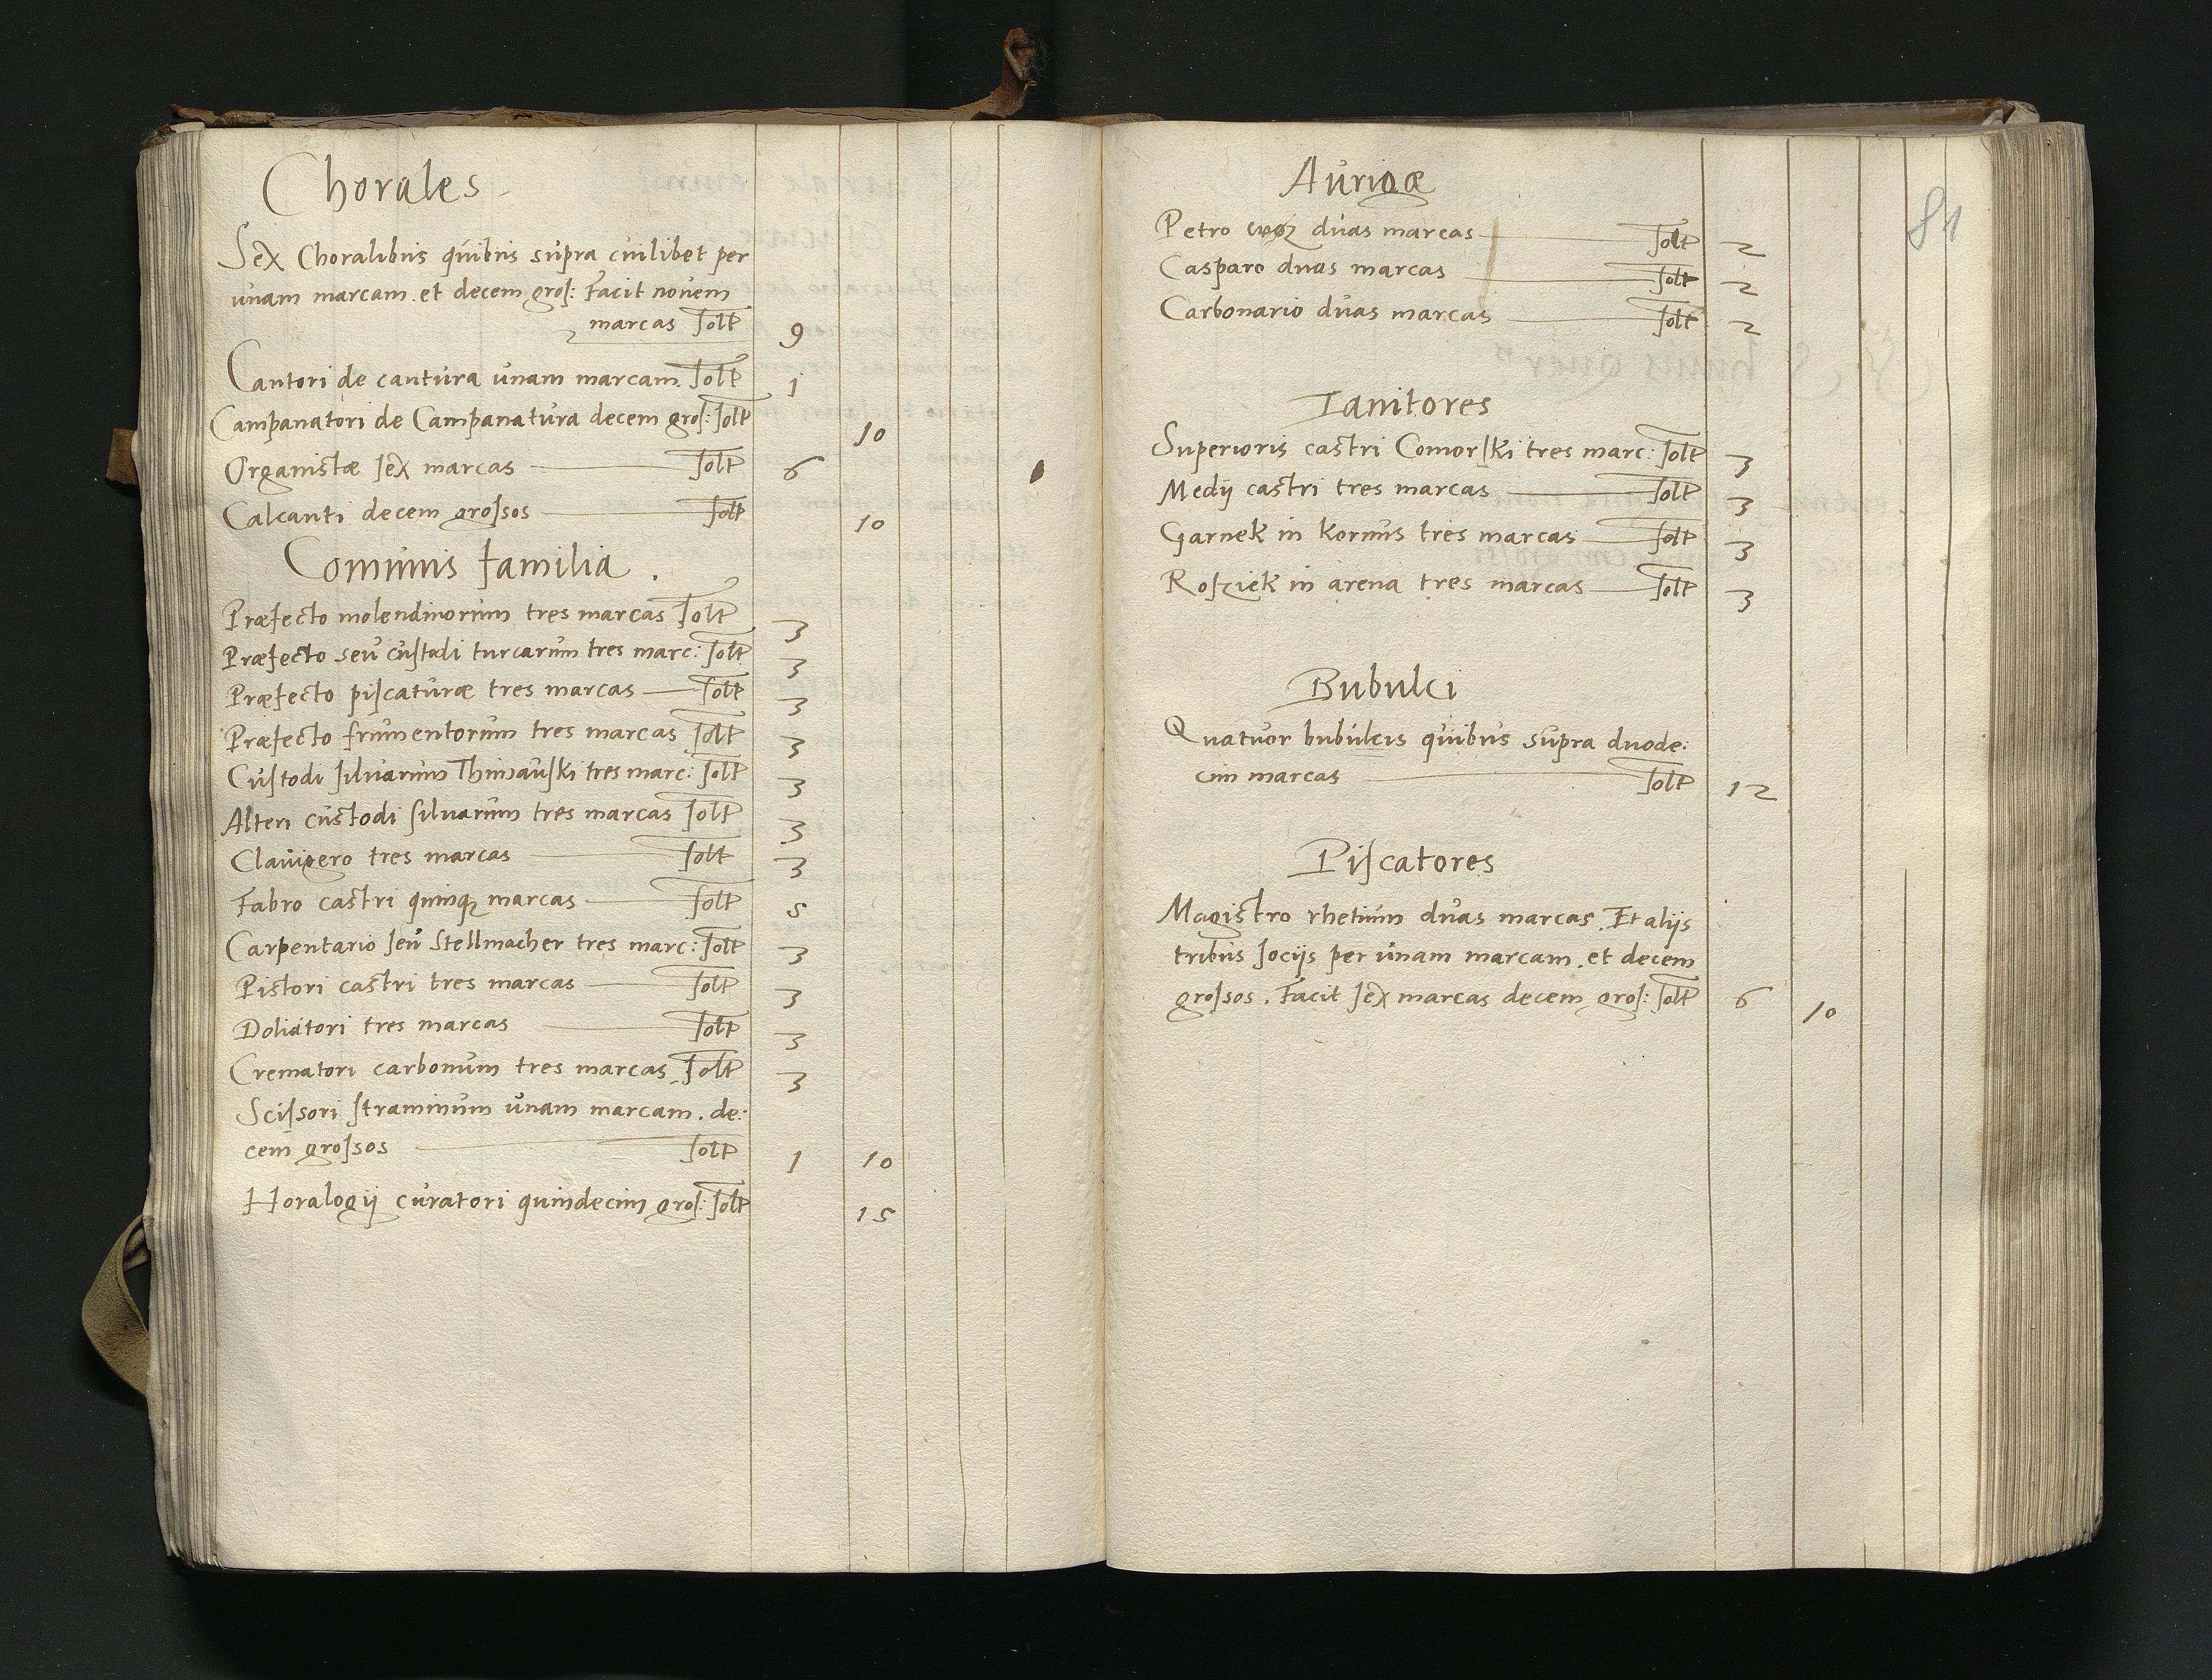 Chorales
Sex Choralibus quibus supra cuilibet per
unam marcam. et decem gros: Facit novem
marcas solt 9
Cantori de cantura unam marcam solt 1
Campanatori de Campanatura decem gros: solt 10
Organistæ sex marcas solt 6
Calcanti decem grossos solt 10
Communis familia.
Præfecto molendinorum tres marcas solt 3
Præfecto seu custodi turcarum tres marc: solt 3
Præfecto piscaturæ tres marcas solt 3
Præfecto frumentorum tres marcas solt 3
Custodi silvarum Thimauski tres marc: solt 3
Alteri custodi silvarum tres marcas solt 3
Clavigero tres marcas solt 3
Fabro castri quinq; marcas solt 5
Carpentario seu Stellmacher tres marc: solt 3
Pistori castri tres marcas solt 3
Doliatori tres marcas solt 3
Crematori carbonum tres marcas solt 3
Scissori straminum unam marcam. de:
cem grossos solt 1 10
Horalogij curatori quindecim gros: solt 15
81
Aurigæ
Petro woz duas marcas solt 2
Casparo duas marcas solt 2
Carbonario duas marcas solt 2
Ianitores
Superioris castri Comorski tres marc: solt 3
Medij castri tres marcas solt 3
Garnek in kornus tres marcas solt 3
Rosziek in arena tres marcas solt 3
Bubulci
Quatuor bubulcis quibus supra duode:
cim marcas solt 12
Piscatores
Magistro rhetium duas marcas. Et alijs
tribus socijs per unam marcam. et decem
grossos. Facit sex marcas decem gros: solt 6 10